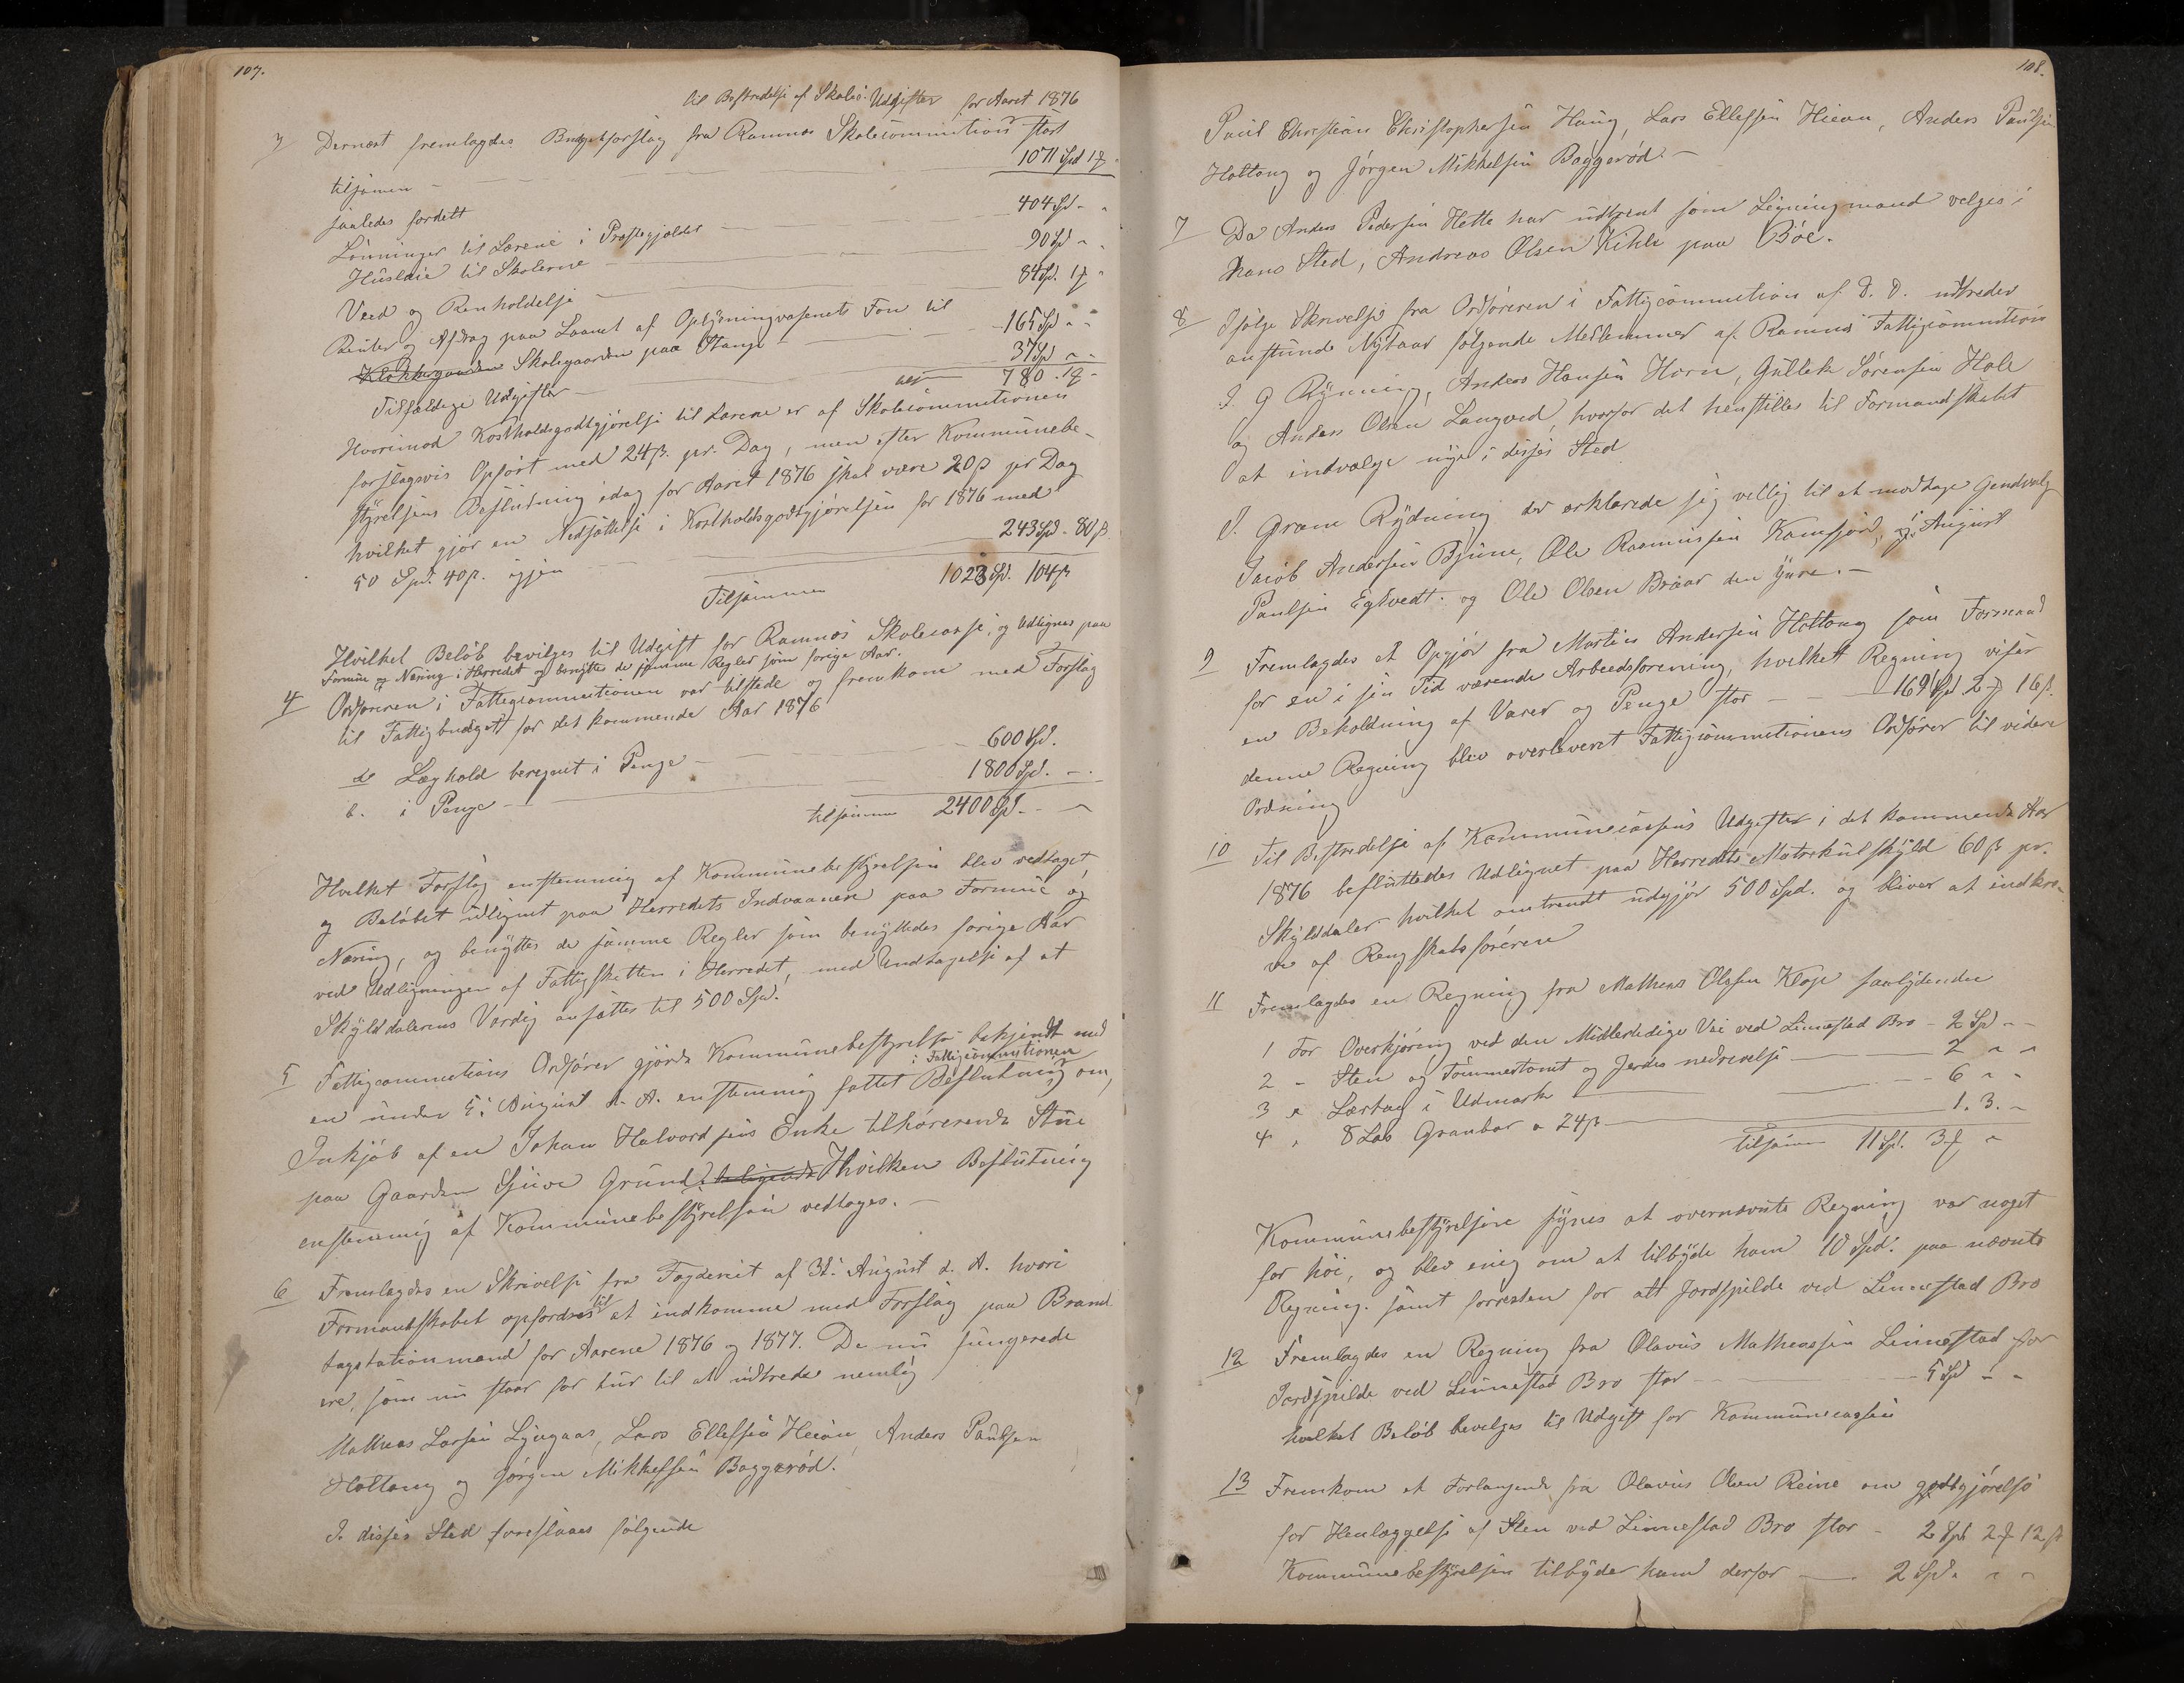 107.
til Bestridelse af Skolens Udgifter for Aaret 1876
3 Dernæst fremlagdes Budgetforslag fra Ramnæs Skolecommition stort
tilsamen - 1071 Spd 1 ₰ -
saaledes fordelt
Lönninger til Lærerne i Præstegjældet - 404 Spd - -
Huusleie til Skolerne - 90 Spd - -
Veed og Renholdelse - 84 Spd. 1 ₰ -
Renter og Afdrag paa Laanet af Oplysningsvæsenets Fon til
Klokkergaarden Skolegaarden paa Stange - 165 Spd - -
Tilfældige Udgifter - 37 Spd - -
780. 1 ₰ -
Hvorimod Kostholdsgodtgjörelse til Lærerne er af Skolecommitionen
forslagsvis Opfört med 24 β. pr. Dag, men efter Kommunebe-
styrelsens Beslutning idag for Aaret 1876 skal være 20 β pr Dag
hvilket gjör en Nedsættelse i Kostholdsgodtgjörelsen for 1876 med
50 Spd. 40 β. igjen - 243 Spd. 80 β.
Tilsammen 1023 Spd. 104 β
Hvilket Belöb bevilges til Udgift for Ramnæs Skolecasse, og Udlignes paa
Formue og Næring i Herredet og benyttes de samme Regler som forige Aar.
4 Ordföreren i Fattigcommitionen var tilstede og fremkom med Forslag
til Fattigbudgett for det kommende Aar 1876
a Læghold beregnet i Penge - 600 Spd.
b. i Penge - 1800 Spd. - -
tilsamme 2400 Spd. - -
Hvilket Forslag enstemmig af Kommunebestyrelsen blev vedtaget,
og Belöbet udlignet paa Herredets Indvaanere paa Formue og
Næring, og benyttes de samme Regler som benyttedes forige Aar
ved Udligningen af Fattigskatten i Herredet, med Undtagelse af at
Skylddalerens Værdig ansættes til 500 Spd.
5 Fattigcommitions Ordförer gjorde Kommunebestyrelse bekjendt med
en under 5. August d. A. enstemmig i Fattigcommitionen fattet Beslutning om,
Inkjöb af en Johan Halvordsens Enke tilhörerende Stue
paa Gaarden Sjuve Grund. beligende Hvilken Beslutning
enstemmig af Kommunebestyrelsen vedtages. -
6 Fremlagdes en Skrivelse fra Fogderiet af 31. August d. A. hvori
Formandskabet opfordres til at indkomme med Forslag paa Brand
tagstationmænd for Aarene 1876 og 1877. De nu fungerede
ere, som nu staar for tur til at udtrede nemlig
Mathias Larsen Lyngaas, Lars Ellefsen Heian, Anders Paulsen
Holtung og Jörgen Mikkelsen Baggeröd.
I disses Sted foreslaaes fölgende
108.
Paul Christian Christophersen Haug, Lars Ellefsen Hiean, Anders Paulsen
Holtung og Jörgen Mikkelsen Baggeröd. -
7 Da Anders Pedersen Hette har udtrent som Ligningmand velges i
hans Sted, Andreas Olsen Kihle paa Böe.
8 Ifölge Skrivelse fra Ordföreren i Fattigcommition af D. D. udtreder
anstunde Nytaar fölgende Medlemmer af Ramnæs Fattigcommition
J. G Rÿning, Anders Hansen Horn, Gullek Sörensen Hole
og Anders Olsen Langved, hvorfor det henstilles til Formandskabet
at indvælge nye i disses Sted
J. Gram Rydning der erklærede sig vellig til at modtage Gendvalg
Jacob Andersen Bjune, Ole Rasmussen Kamfjord, August
Paulsen Egtvedt. og Ole Olsen Braar den Yure. -
9 Fremlagdes et Opgjör fra Martin Andersen Holtung som Formand
for en i sin Tid værende Arbeidsforening, hvilket Regning viser
en Beholdning af Varer og Penge stor - 169 Spd. 2 ₰ 16 β.
denne Regning blev overleveret Fattigcommitionens Ordförer til videre
Ordning
10 Til Bestridelse af Kommunecassens Udgifter i det kommende Aar
1876 besluttedes Udlignet paa Herredets Matrekulskyld 60 β pr.
Skylddaler hvilket omtrendt udgjör 500 Spd. og bliver at indkræ-
ve af Rengskabsföreren
11 Fremlagdes en Regning fra Mathias Olsen Klop saalydende
1 For Overkjöring ved den Midlertidige Vei ved Linnestad Bro - 2 Spd - -
2 - Sten og Tömmertomt og Jerdes nedrivelse - 2 - -
3 " Lærtag i Udmark - 6 - -
4 " 8 Læs Granbar a 24 β - 1. 3. -
tilsamm 11 Spd. 3 ₰ -
Kommunebestyrelsen synes at overnævnte Regning var noget
for höi, og blev enig om at tilbyde ham 10 Spd. paa nævnte
Regning. samt forresten for alt Jordspilde ved Linnestad Bro
12 Fremlagdes en Regning fra Olavus Mathiassen Linnestad for
Jordspilde ved Linnestad Bro stor - 5 Spd - -
hvilket Belöb bevelges til Udgift for Kommunecassen
13 Fremkom et Forlangende fra Olavus Olsen Reine om godtgjörelse
for Henlæggelse af Sten ved Linnestad Bro stor - 2 Spd 2 ₰ 12 β
Kommunebestyrelsen tilbyder ham derfor - 2 Spd. - -